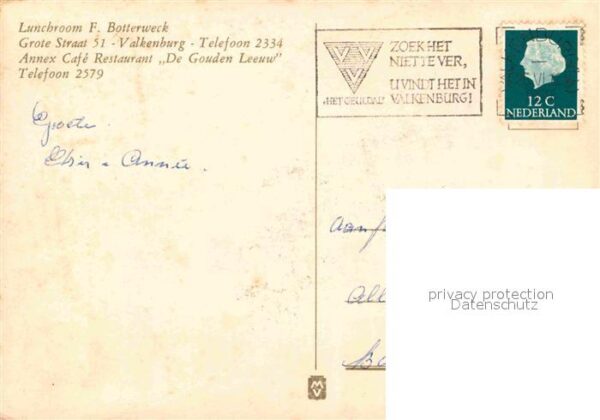 Lunchroom F. Botterweck
Grote Straat 51 - Valkenburg - Telefoon 2334
Annex Café Restaurant „De Gouden Leeuw”
Telefoon 2579
ZOEK HET
NIET TE VER,
U VINDT HET IN
„HET GEULDAL” VALKENBURG!
12 C
NEDERLAND
Groete
Annie.
privacy protection
Datenschutz
MV